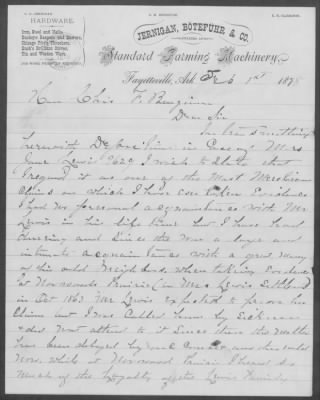 J. A. JERNIGAN
HARDWARE.
Iron, Steel and Nails.
Buckeye Reapers and Mowers,
Chicago Pitts Threshers,
Buck's Brilliant Stoves,
Tin and Wooden Ware.
JERNIGAN, BOTEFUHR, & CO.
Standard Farming Machinery.
Fayetteville, Ark Feb 1st 1878
Hon Chas F. Benjamin
Dear Sir
In transmitting
herewith Deposition in Case of Mrs
Jane Lewis 9629 I wish to state that
I regard it as one of the Most Meritorious
Claims on which I have ever taken Evidence
I had no personal acquaintance with Mr
Lewis in his life time but I have had
during and since the War a large and
intimate acquaintance with a great many
of his old Neighbors. when taking Evidence
at Norwoods Prairie (in Mrs Lewis Settlement)
in Oct 1863 Mr Lewis expected to prove his
Claim but I was Called home by Sickness
& did not attend to it Since then the matter
has been delayed by one Cause and another until
Now. while at Norwood Prairie I heard so
much of the loyalty of the Lewis Family